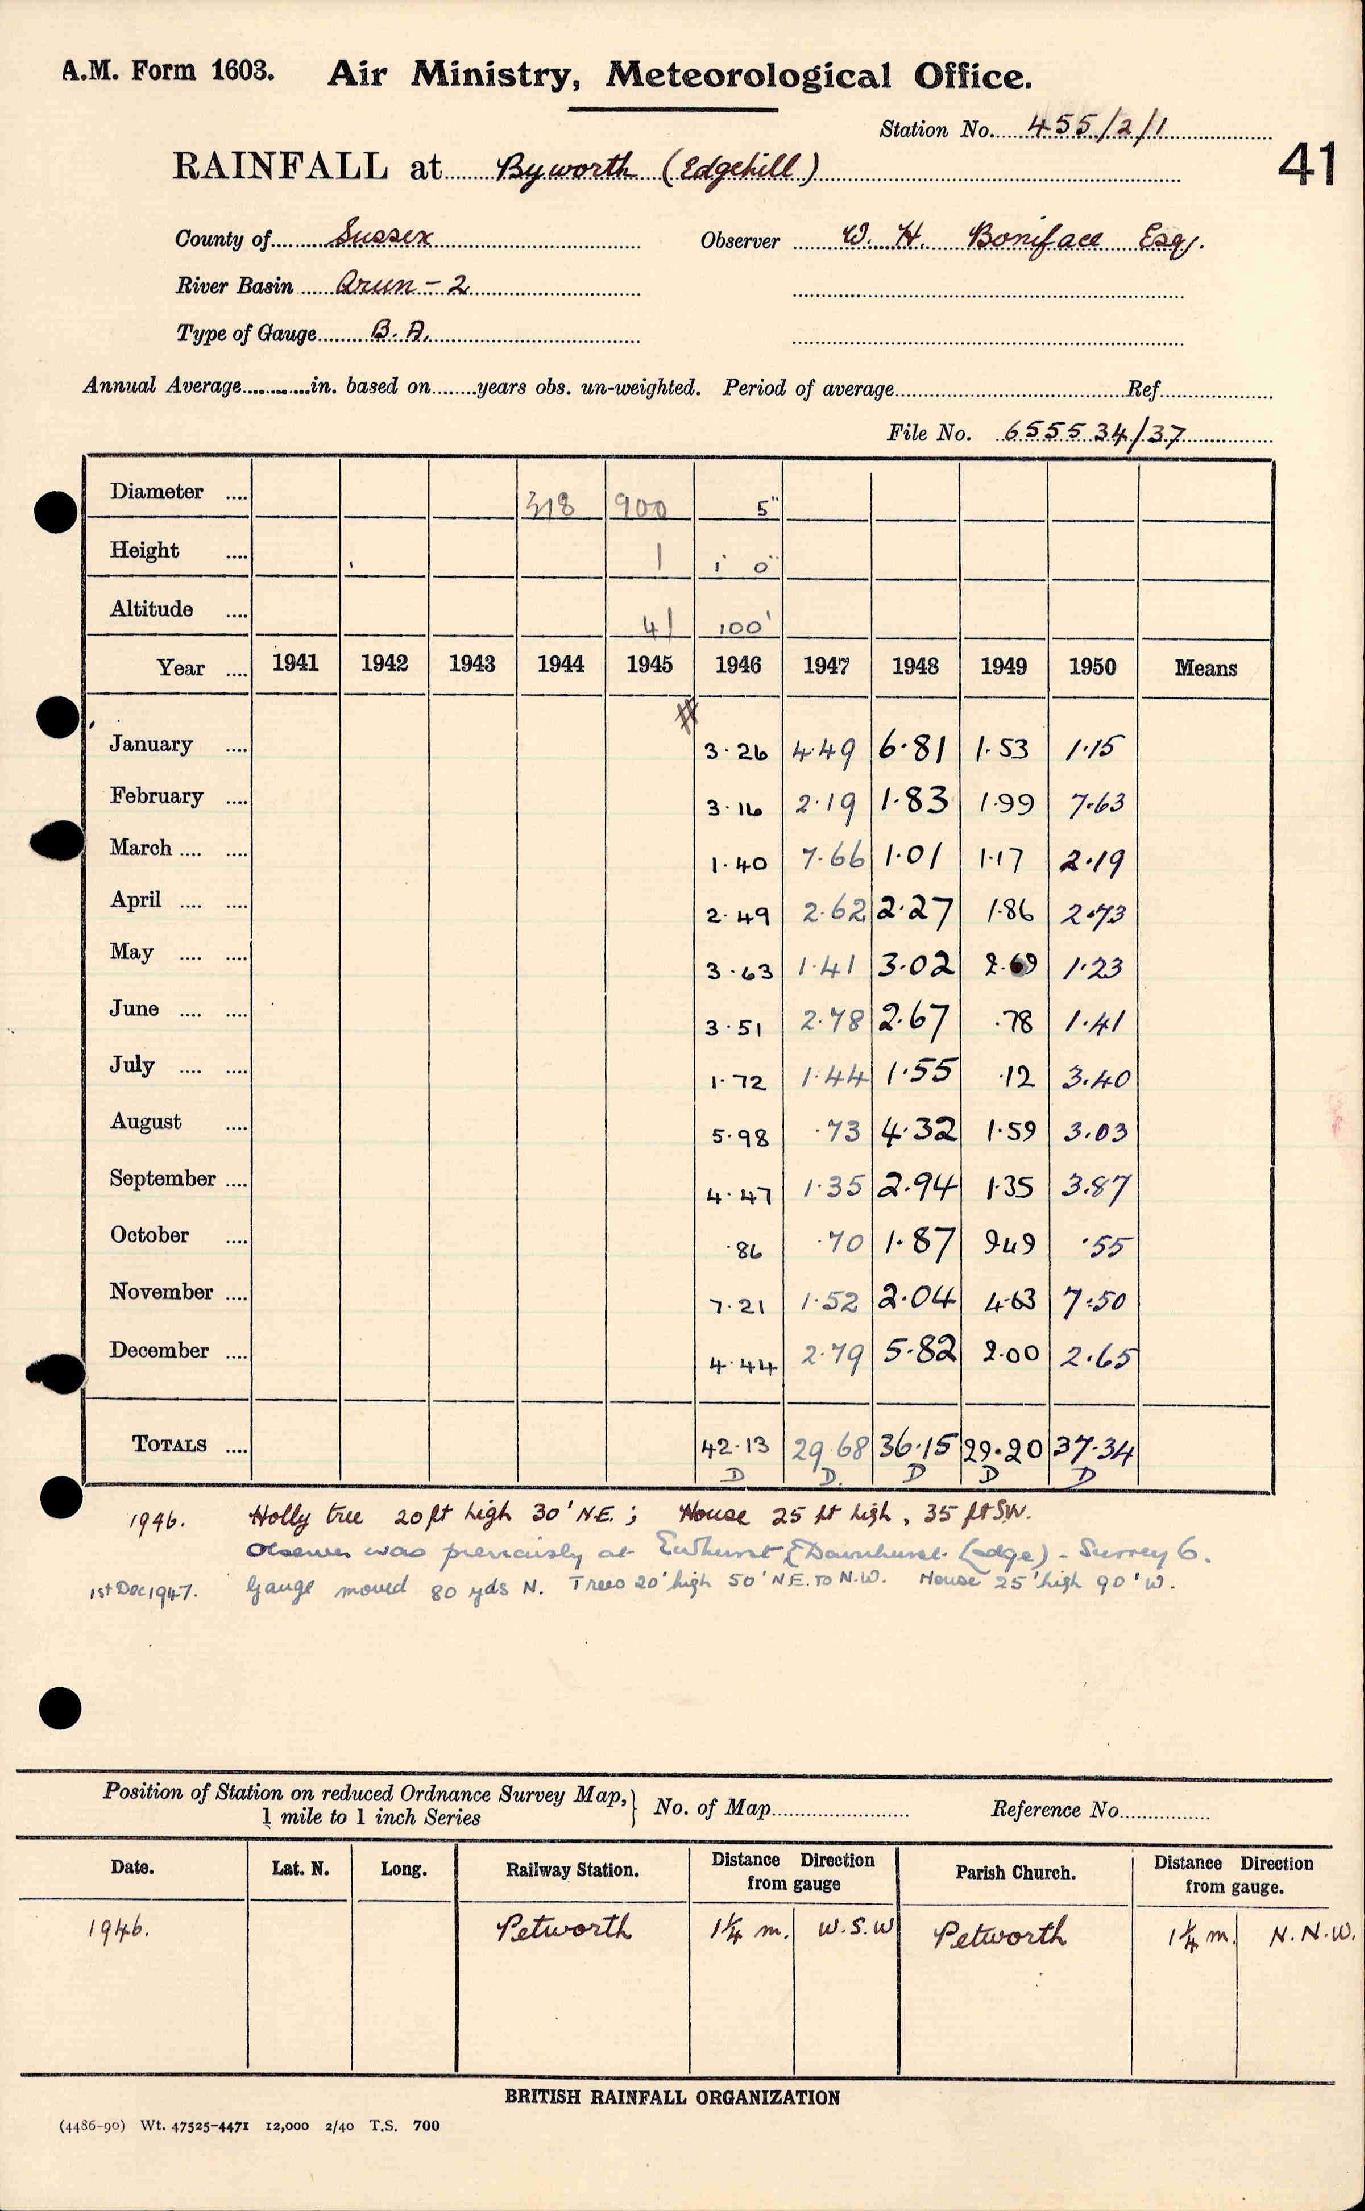 A.M. Form 1603. Air Ministry, Meteorological Office.
Station No. 455/2/1
41
RAINFALL at Byworth (Edgehill)
County of Sussex Observer W. H. Boniface Esq.
River Basin Arun - 2
Type of Gauge B.A.
Annual Average in. based on years obs. un-weighted. Period of average Ref
File No. 655534/37
Diameter 318 900 5"
Height 1 1' 0"
Altitude 41 100'
Year 1941 1942 1943 1944 1945 1946 1947 1948 1949 1950 Means
#
January 3.26 4.49 6.81 1.53 1.15
February 3.16 2.19 1.83 1.99 7.63
March 1.40 7.66 1.01 1.17 2.19
April 2.49 2.62 2.27 1.86 2.73
May 3.63 1.41 3.02 2.69 1.23
June 3.51 2.78 2.67 .78 1.41
July 1.72 1.44 1.55 .12 3.40
August 5.98 .73 4.32 1.59 3.03
September 4.47 1.35 2.94 1.35 3.87
October .86 .70 1.87 9.49 .55
November 7.21 1.52 2.04 4.63 7.50
December 4.44 2.79 5.82 2.00 2.65
TOTALS 42.13 29.68 36.15 29.20 37.34
D D. D D D
1946. Holly tree 20 ft high 30' N.E. ; House 25 ft high, 35 ft S.W.
Observer was previously at Ewhurst (edge) - Surrey 6.
1st Dec 1947. Gauge moved 80 yds N. Trees 20' high 50' N.E. TO N.W. House 25' high 90' W.
Position of Station on reduced Ordnance Survey Map, No. of Map Reference No.
1 mile to 1 inch Series
Date. Lat. N. Long. Railway Station. Distance Direction from gauge Parish Church. Distance Direction from gauge.
1946. Petworth 1¼ m. W.S.W Petworth 1¼ m. N.N.W.
BRITISH RAINFALL ORGANIZATION
(4486-90) Wt. 47525-4471 12,000 2/40 T.S. 700